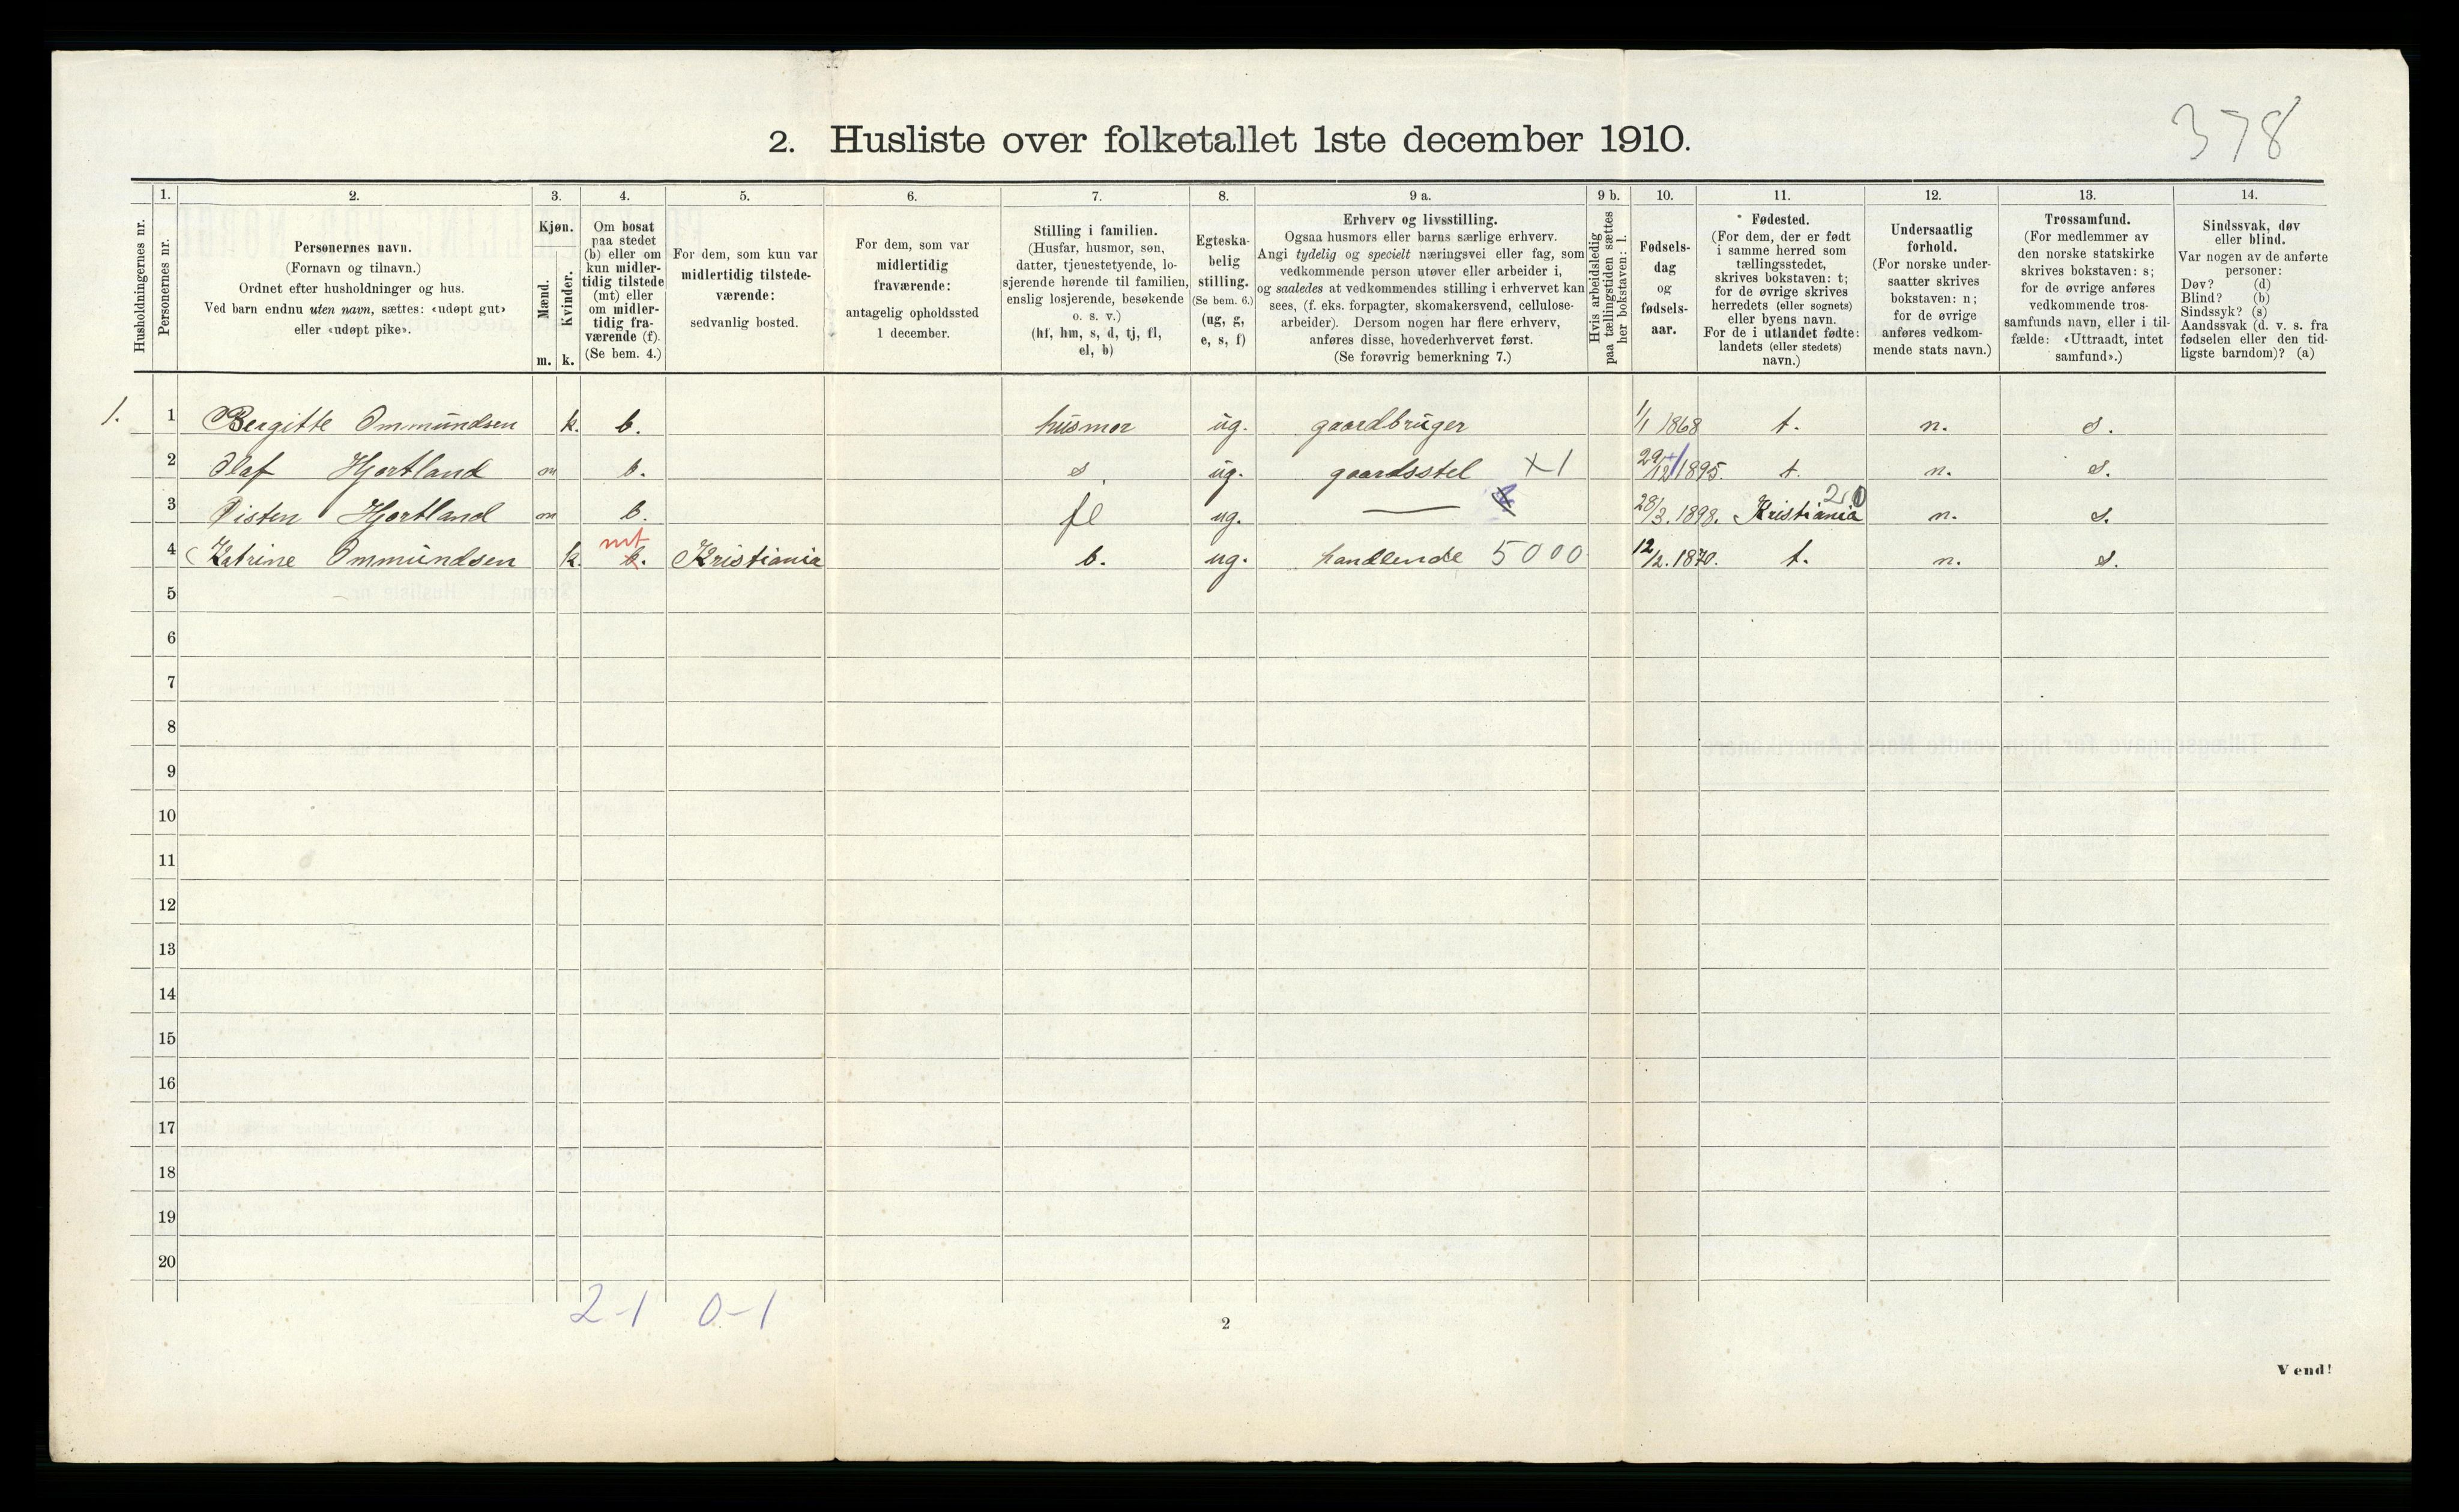 378
2. Husliste over folketallet 1ste december 1910.
Husholdningernes nr.
1. Personernes nr.
2. Personernes navn.
(Fornavn og tilnavn.)
Ordnet efter husholdninger og hus.
Ved barn endnu uten navn, sættes: «udøpt gut»
eller «udøpt pike».
3. Kjøn.
Mænd. m.
Kvinder. k.
4. Om bosat
paa stedet
(b) eller om
kun midler-
tidig tilstede
(mt) eller
om midler-
tidig fra-
værende (f).
(Se bem. 4.)
5. For dem, som kun var
midlertidig tilstede-
værende:
sedvanlig bosted.
6. For dem, som var
midlertidig
fraværende:
antagelig opholdssted
1 december.
7. Stilling i familien.
(Husfar, husmor, søn,
datter, tjenestetyende, lo-
sjerende hørende til familien,
enslig losjerende, besøkende
o. s. v.)
(hf, hm, s, d, tj, fl,
el, b)
8. Egteska-
belig
stilling.
(Se bem. 6.)
(ug, g,
e, s, f)
9 a. Erhverv og livsstilling.
Ogsaa husmors eller barns særlige erhverv.
Angi tydelig og specielt næringsvei eller fag, som
vedkommende person utøver eller arbeider i,
og saaledes at vedkommendes stilling i erhvervet kan
sees, (f. eks. forpagter, skomakersvend, cellulose-
arbeider). Dersom nogen har flere erhverv,
anføres disse, hovederhvervet først.
(Se forøvrig bemerkning 7.)
9 b. Hvis arbeidsledig
paa tællingstiden sættes
her bokstaven: l.
10. Fødsels-
dag
og
fødsels-
aar.
11. Fødested.
(For dem, der er født
i samme herred som
tællingsstedet,
skrives bokstaven: t;
for de øvrige skrives
herredets (eller sognets)
eller byens navn.
For de i utlandet fødte:
landets (eller stedets)
navn.)
12. Undersaatlig
forhold.
(For norske under-
saatter skrives
bokstaven: n;
for de øvrige
anføres vedkom-
mende stats navn.)
13. Trossamfund.
(For medlemmer av
den norske statskirke
skrives bokstaven: s;
for de øvrige anføres
vedkommende tros-
samfunds navn, eller i til-
fælde: «Uttraadt, intet
samfund».)
14. Sindssvak, døv
eller blind.
Var nogen av de anførte
personer:
Døv? (d)
Blind? (b)
Sindssyk? (s)
Aandssvak (d. v. s. fra
fødselen eller den tid-
ligste barndom)? (a)
1. 1 Bergitte Ommundsen k. b. husmor ug. gaardbruger 1/1 1868 t. n. s.
2 Olaf Hjortland m b. s. ug. gaardsstel X 1 29/12 1895. t. n. s.
3 Øisten Hjortland m b. fl ug. — 28/3. 1898. Kristiania n. s.
4 (Katrine Ommundsen k. mt b. Kristiania b. ug. handlende 5000 12/2. 1870. t. n. s.
5
6
7
8
9
10
11
12
13
14
15
16
17
18
19
20
2-1 0-1
2
Vend!